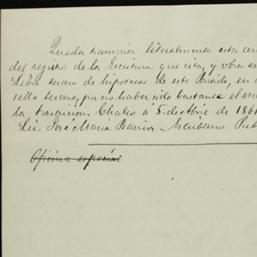 Queda transcrita literalmente esta
del registro de la Escritura que cita, y obra en
Libro de hipotecas de este Partido, en
sello tercero, por no haber sido bastante el
Chalco á 5 de Octbre de 186
Lic. José María Barrios Escribano Pub
Oficina especial